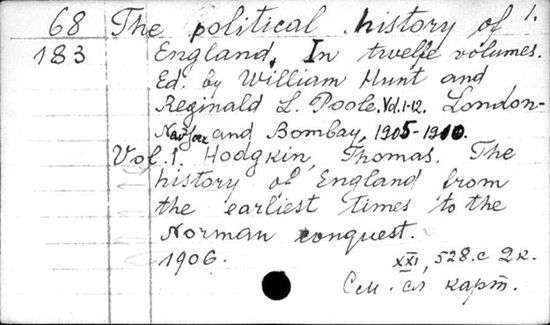 68 The political history of 1.
183 England. In twelfe volumes.
Ed. by William Hunt and
Reginald L. Poole. Vol. 1-12. London-
New York and Bombay, 1905-1910.
Vol. 1. Hodgkin, Thomas. The
history of England from
the earliest times to the
Norman conquest.
1906. XXI, 528 c 2 к.
См. сл карт.